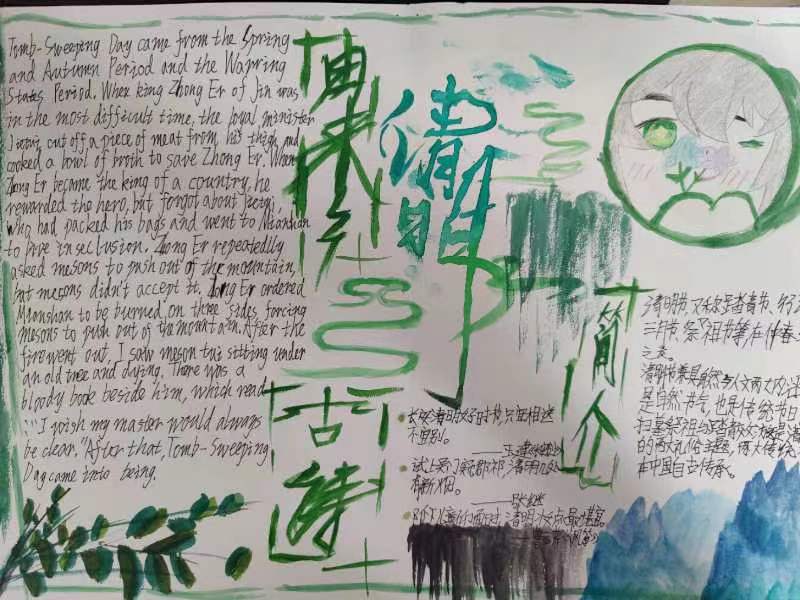 Tomb-Sweeping Day came from the Spring
and Autumn Period and the Warring
States Period. When king Zhong Er of Jin was
in the most difficult time, the loyal minister
cut off a piece of meat from his thigh and
cooked a bowl of broth to save Zhong Er. When
Zhong Er became the king of a country, he
rewarded the hero, but forgot about
who had packed his bags and went to Mianshan
to live in seclusion. Zhong Er repeatedly
asked mesons to push out of the mountain,
but mesons didn't accept it. Zhong Er ordered
Mianshan to be burned on three sides, forcing
mesons to push out of the mountain. After the
fire went out, I saw meson tui sitting under
an old tree and dying. There was a
bloody book beside him, which read
"I wish my master would always
be clear." After that, Tomb-Sweeping
Day came into being.
由来
古诗
清明
简介
清明节，又称踏青节、
三月节、祭祖节等，在仲春
之交。
清明节兼具自然与人文两大内涵
是自然节气，也是传统节日
扫墓祭祖与踏青郊游是清
的两大礼俗主题，
在中国自古传承。
长欢清明好时节，只
不忍别。
试上吴门 郡 清明
有新烟。
——张继
清明 最堪